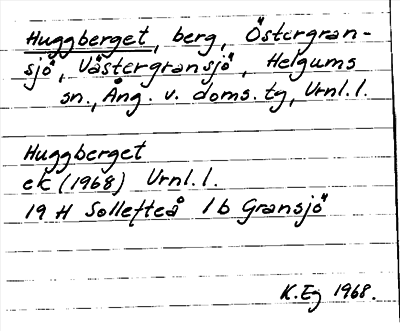 Huggberget, berg, Östergran-
sjö, Västergransjö, Helgums
sn., Ång. v. doms. tg, Vrnl. l.
Huggberget
ek (1968) Vrnl. l.
19 H Sollefteå 1b Gransjö
K. Eg 1968.